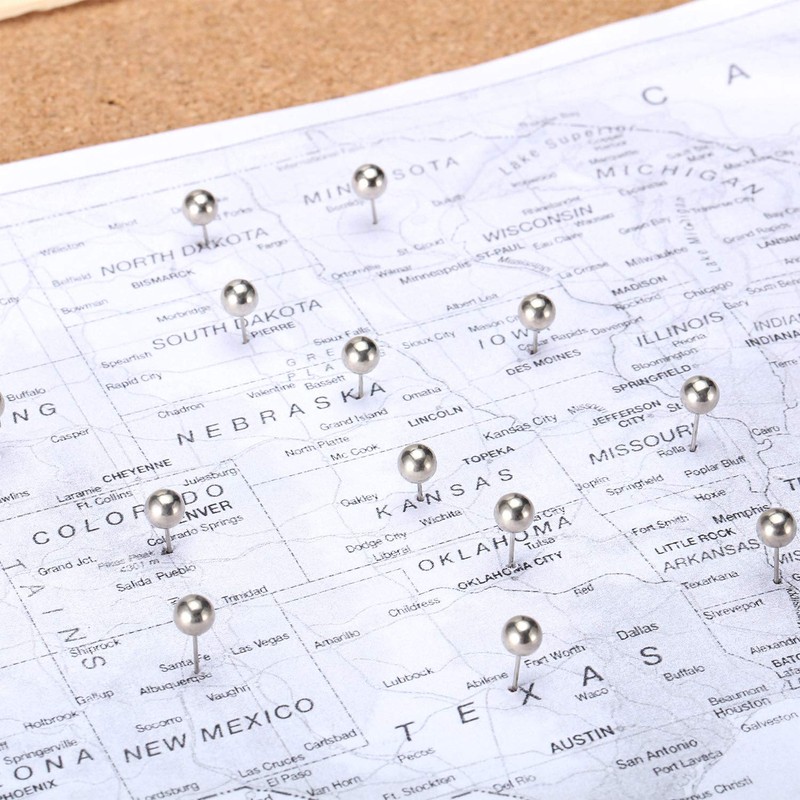 C A
Lake Superior
MICHIGAN
International Falls
Marquette
Escanaba
Ironwood
Rhinelander
Duluth
Williston
Minot
Fargo
NORTH DAKOTA
BISMARCK
Belfield
Bowman
St. Cloud
Ortonville
Willmar
Minneapolis
ST-PAUL
WISCONSIN
Eau Claire
Green Bay
Traverse City
Grand Rapids
Lake Michigan
Milwaukee
La Crosse
MADISON
Rockford
Chicago
Gary
South Bend
Albert Lea
Mobridge
SOUTH DAKOTA
PIERRE
Spearfish
Rapid City
Sioux Falls
Sioux City
Mason City
Davenport
DES MOINES
ILLINOIS
Peoria
Bloomington
SPRINGFIELD
GREAT
PLA
Valentine
Bassett
Chadron
NEBRASKA
Grand Island
North Platte
Mc Cook
Omaha
LINCOLN
Buffalo
NG
Casper
CHEYENNE
Laramie
Ft. Collins
Julesburg
Kansas City
TOPEKA
JEFFERSON
CITY
MISSOURI
Rolla
Cairo
Poplar Bluff
Springfield
Joplin
Oakley
KANSAS
Wichita
Dodge City
Liberal
COLORADO
Colorado Springs
Grand Jct.
Pikes Peak
4301 m
Salida
Pueblo
Trinidad
OKLAHOMA
Tulsa
OKLAHOMA CITY
Hoxie
Fort Smith
Memphis
LITTLE ROCK
ARKANSAS
Texarkana
Shreveport
TAINS
Shiprock
Santa Fe
Las Vegas
Albuquerque
Gallup
Vaughn
Amarillo
Childress
Red
Lubbock
Abilene
Fort Worth
Dallas
TEXAS
Waco
Buffalo
Holbrook
Socorro
Springerville
NEW MEXICO
Carlsbad
Las Cruces
El Paso
Van Horn
Pecos
Ft. Stockton
Del Rio
AUSTIN
San Antonio
Port Lavaca
Beaumont
Houston
Galveston
ONA
PHOENIX